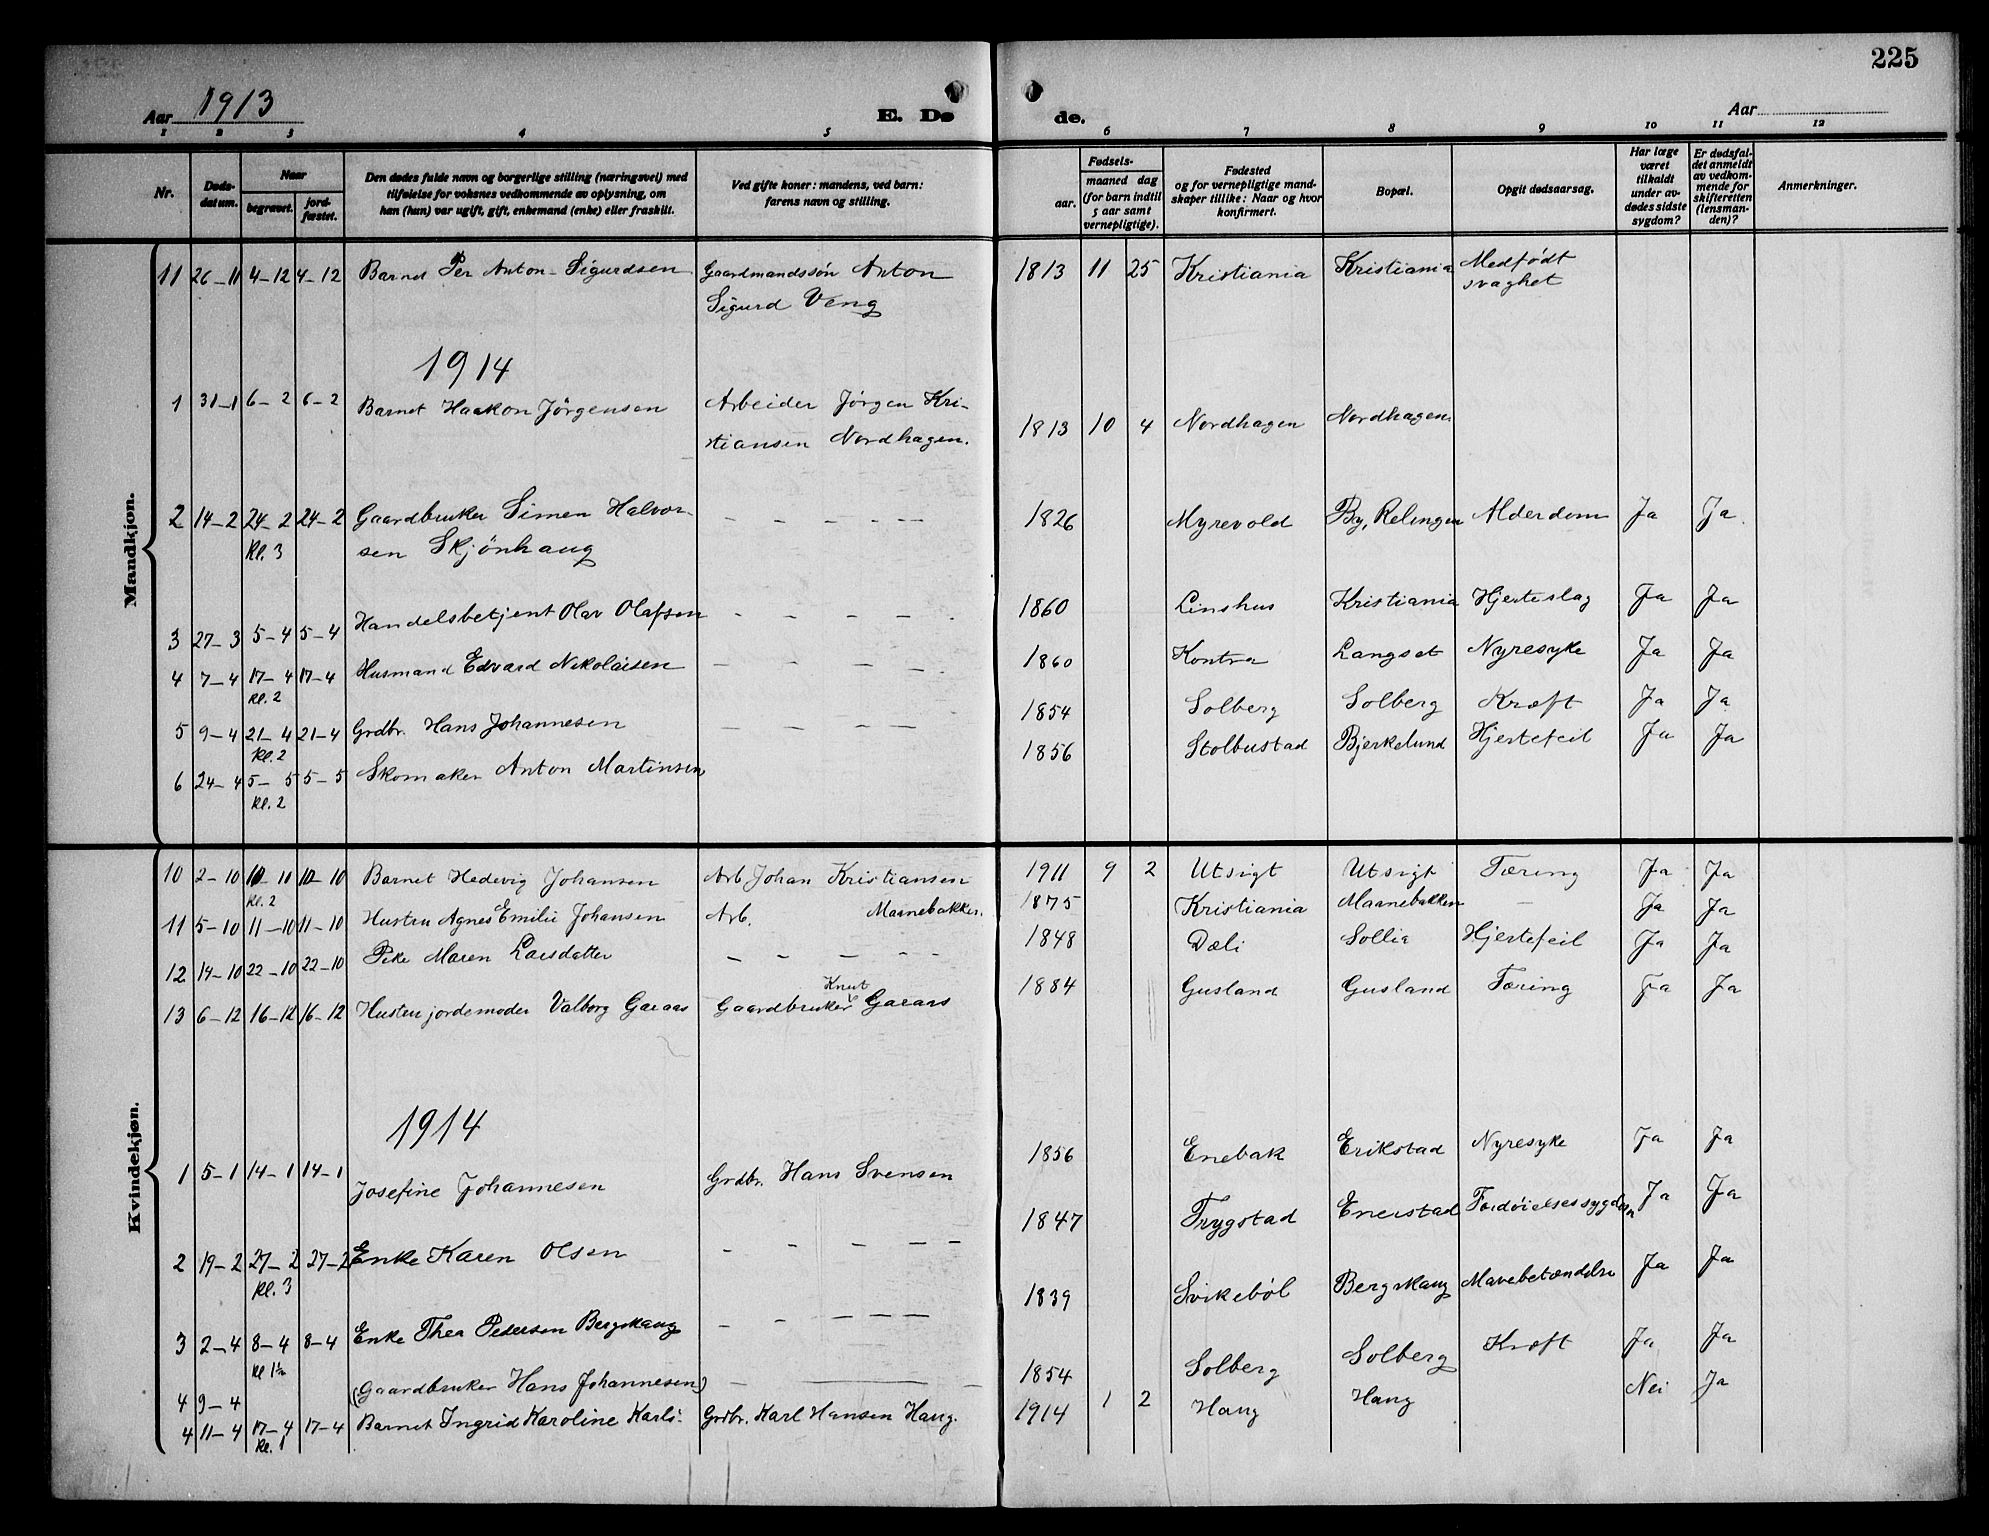 225
Aar 1913
E. Dø
de.
Aar
1 2 3 4 5 6 7 8 9 10 11 12
Nr.
Døds-
datum.
Naar
begravet.
jord-
fæstet.
Den dødes fulde navn og borgerlige stilling (næringsvei) med
tilføielse for voksnes vedkommende av oplysning, om
han (hun) var ugift, gift, enkemand (enke) eller fraskilt.
Ved gifte koner: mandens, ved barn:
farens navn og stilling.
Fødsels-
aar.
maaned dag
(for barn indtil
5 aar samt
vernepligtige).
Fødested
og for vernepligtige mand-
skaper tillike: Naar og hvor
konfirmert.
Bopæl.
Opgit dødsaarsag.
Har læge
været
tilkaldt
under av-
dødes sidste
sygdom?
Er dødsfal-
det anmeldt
av vedkom-
mende for
skifteretten
(lensman-
den)?
Anmerkninger.
Mandkjøn.
11 26-11 4-12 4-12 Barnet Per Anton Sigurdsen Gaardmandssøn Anton 1813 11 25 Kristiania Kristiania Medfødt
Sigurd Veng svaghet
1914
1 31-1 6-2 6-2 Barnet Haakon Jörgensen Arbeider Jörgen Kri- 1813 10 4 Nordhagen Nordhagen
stiansen Nordhagen.
2 14-2 24-2 24-2 Gaardbruker Simen Halvor- - - - - - 1826 Myrevold By, Relingen Alderdom Ja Ja
Kl. 3 sen Skjönhaug
3 27-3 5-4 5-4 Handelsbetjent Olav Olafsen - - - - - 1860 Linshus Kristiania Hjerteslag Ja Ja
4 7-4 17-4 17-4 Husmand Edvard Nikolaisen - - - - - 1860 Kontra Langset Nyresyke Ja Ja
Kl. 2
5 9-4 21-4 21-4 Grdbr. Hans Johannesen - - - - 1854 Solberg Solberg Kræft Ja Ja
Kl. 2
6 24-4 5-5 5-5 Skomaker Anton Martinsen 1856 Stolbustad Bjerkelund Hjertefeil Ja Ja
Kl. 2
Kvindekjøn.
10 2-10 10 10-10 Barnet Hedevig Johansen Arb. Johan Kristiansen 1911 9 2 Utsigt Utsigt Tæring Ja Ja
Kl. 2
11 5-10 11-10 11-10 Hustru Agnes Emilie Johansen Arb. Maanebakken. 1875 Kristiania Maanebakken - Ja Ja
12 14-10 22-10 22-10 Pike Maren Larsdatter - - - - - 1848 Dæli Sollia Hjertefeil Ja Ja
13 6-12 16-12 16-12 Hustru jordemoder Valborg Garaas Gaardbruker Knut Garaas 1884 Gusland Gusland Tæring Ja Ja
1914
1 5-1 14-1 14-1 Josefine Johannesen Grdbr. Hans Svensen 1856 Enebak Erikstad Nyresyke Ja Ja
2 19-2 27-2 27-2 Enke Karen Olsen - - - - - 1847 Trygstad Enerstad Fordöielsessygdom Ja Ja
Kl. 3
3 2-4 8-4 8-4 Enke Thea Pedersen Bergskaug - - - - - 1839 Svikeböl Bergskaug Mavebetændelse Ja Ja
Kl 1½
4 9-4 (Gaardbruker Hans Johannesen) - - - 1854 Solberg Solberg Kræft Ja Ja
4 11-4 17-4 17-4 Barnet Ingrid Karoline Karls- Grdbr. Karl Hansen Haug. 1914 1 2 Haug Haug Nei Ja
Kl. 1